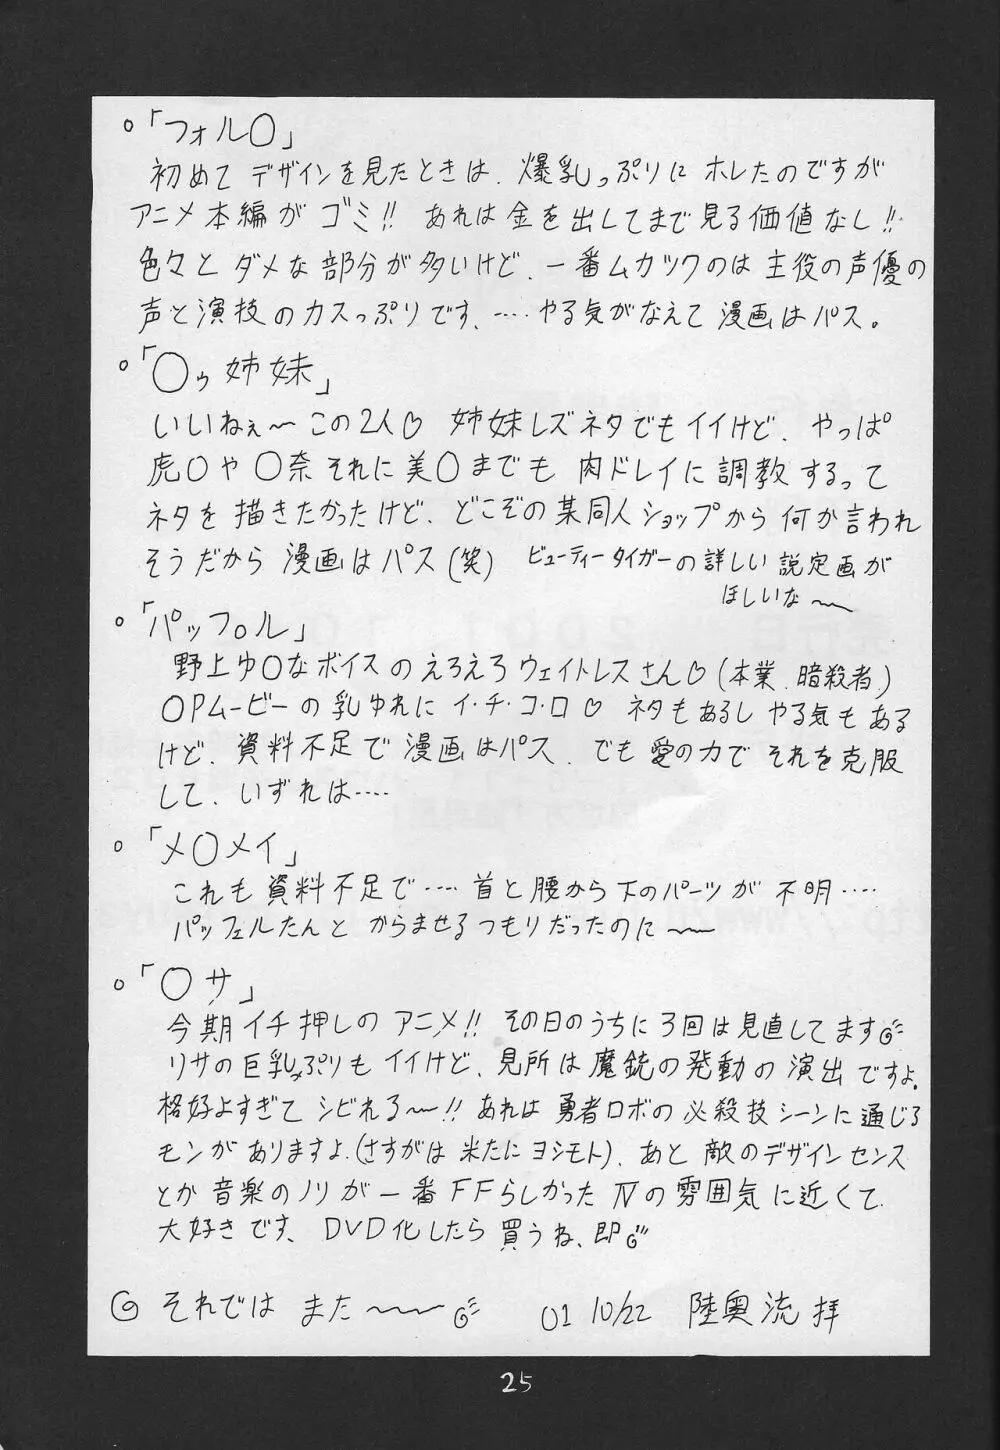 。「フォル〇」
初めて デザインを見たときは、爆乳っぷりに ホレたのですが
アニメ本編が ゴミ!! あれは金を出してまで見る価値なし!!
色々と ダメな部分が多いけど、一番ムカツクのは 主役の声優の
声と演技のカスっぷりです、‥‥やる気がなえて 漫画はパス。
。「〇ゥ姉妹」
いいねぇ〜この2人♡ 姉妹レズネタでもイイけど、やっぱ
虎〇や〇奈それに美〇までも 肉ドレイに調教するって
ネタを描きたかったけど、どこぞの某同人ショップから何か言われ
そうだから 漫画はパス(笑) ビューティータイガーの詳しい設定画が
ほしいな〜
。「パッフ〇ル」
野上ゆ〇なボイスのえろえろウェイトレスさん♡(本業、暗殺者)
OPムービーの乳ゆれに イ・チ・コ・ロ♡ ネタもあるし やる気もある
けど、資料不足で漫画はパス、でも愛の力でそれを克服
して、いずれは‥‥
。「メ〇メイ」
これも 資料不足で‥‥ 首と腰から下のパーツが 不明‥‥
パッフェルたんと からませるつもりだったのに〜
。「〇サ」
今期イチ押しのアニメ!! その日のうちに3回は見直してます
リサの巨乳っぷりもイイけど、見所は魔銃の発動の演出ですよ、
格好よすぎて シビれる〜!! あれは勇者ロボの必殺技シーンに通じる
モンがありますよ、(さすがは 米たにヨシモト)、あと敵のデザインセンス
とか音楽のノリが一番FFらしかったⅣの雰囲気に近くて
大好きです、DVD化したら買うね、即
それでは また〜 01 10/22 陸奥流 拝
25